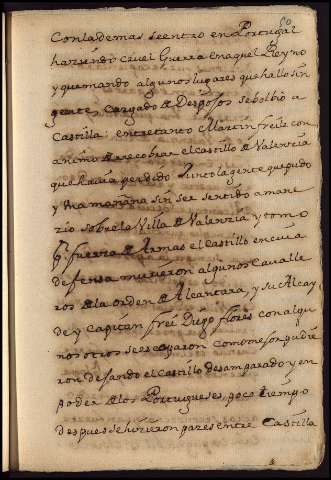 50
Con la demas se entro en Portugal
haziendo cruel Guerra en aquel Reyno
y quemando algunos lugares que hallo sin
gente, cargado de Despojos se bolbio a
Castilla: entretanto Martin freile con
animo de recobrar el castillo de Valenzia
que havia perdido Junto la gente que pudo
y una mañana sin ser sentido amane
zio sobre la Villa de Valenzia y tomo
pr. fuerza de Armas el Castillo en cuia
defensa murieron algunos Cavalle
ros de la orden de Alcantara, y su Alcay
de y Capitan frei Diego flores con algu
nos otros se escaparon como mejor pudie
ron dejando el Castillo desamparado y en
poder de los Portugueses, poco tiempo
despues se hizieron pazes entre Castilla